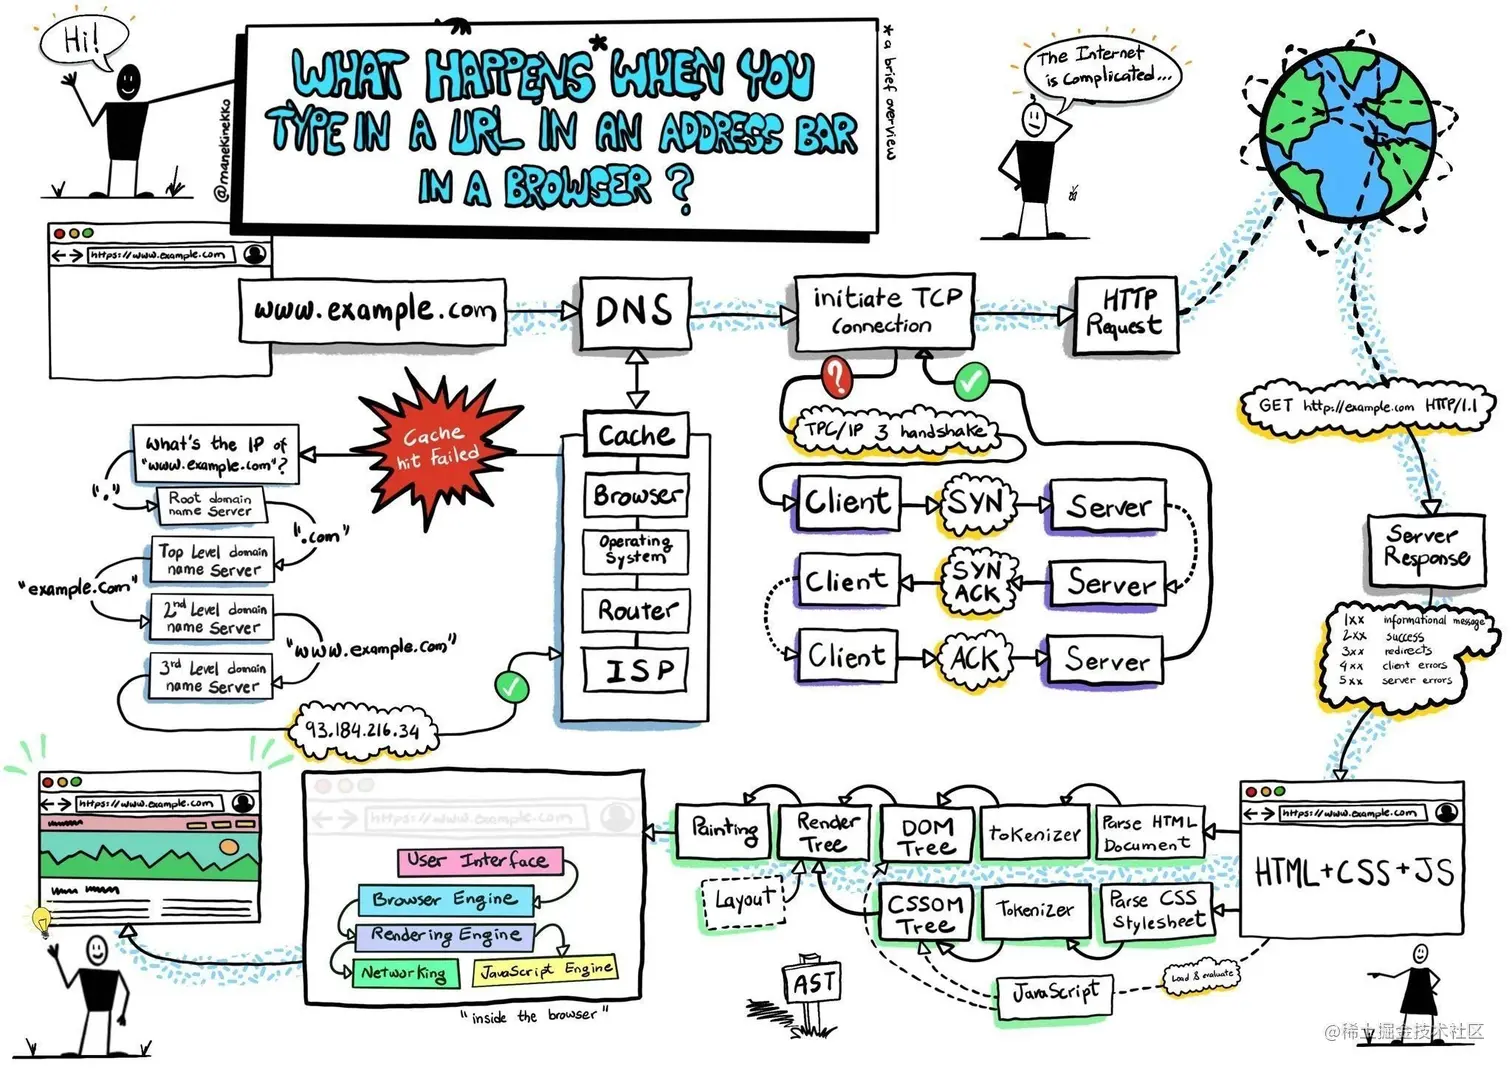 Hi!
WHAT HAPPENS* WHEN YOU
TYPE IN A URL IN AN ADDRESS BAR
IN A BROWSER ?
* a brief overview
@manekinekko
The Internet
is complicated...
https://www.example.com
www.example.com
DNS
initiate TCP
Connection
HTTP
Request
GET http://example.com HTTP/1.1
Server
Response
1xx informational message
2xx success
3xx redirects
4xx client errors
5xx server errors
Cache
hit failed
What's the IP of
"www.example.com"?
"."
Root domain
name Server
".com"
Top Level domain
name Server
"example.com"
2nd Level domain
name Server
"www.example.com"
3rd Level domain
name Server
93.184.216.34
Cache
Browser
Operating
System
Router
ISP
?
TPC/IP 3 handshake
Client
SYN
Server
Client
SYN
ACK
Server
Client
ACK
Server
https://www.example.com
HTML+CSS+JS
Parse HTML
Document
tokenizer
DOM
Tree
Render
Tree
Painting
Layout
Parse CSS
Stylesheet
Tokenizer
CSSOM
Tree
JavaScript
Load & evaluate
AST
https://www.example.com
User Interface
Browser Engine
Rendering Engine
Networking
JavaScript Engine
"inside the browser"
https://www.example.com
@稀土掘金技术社区